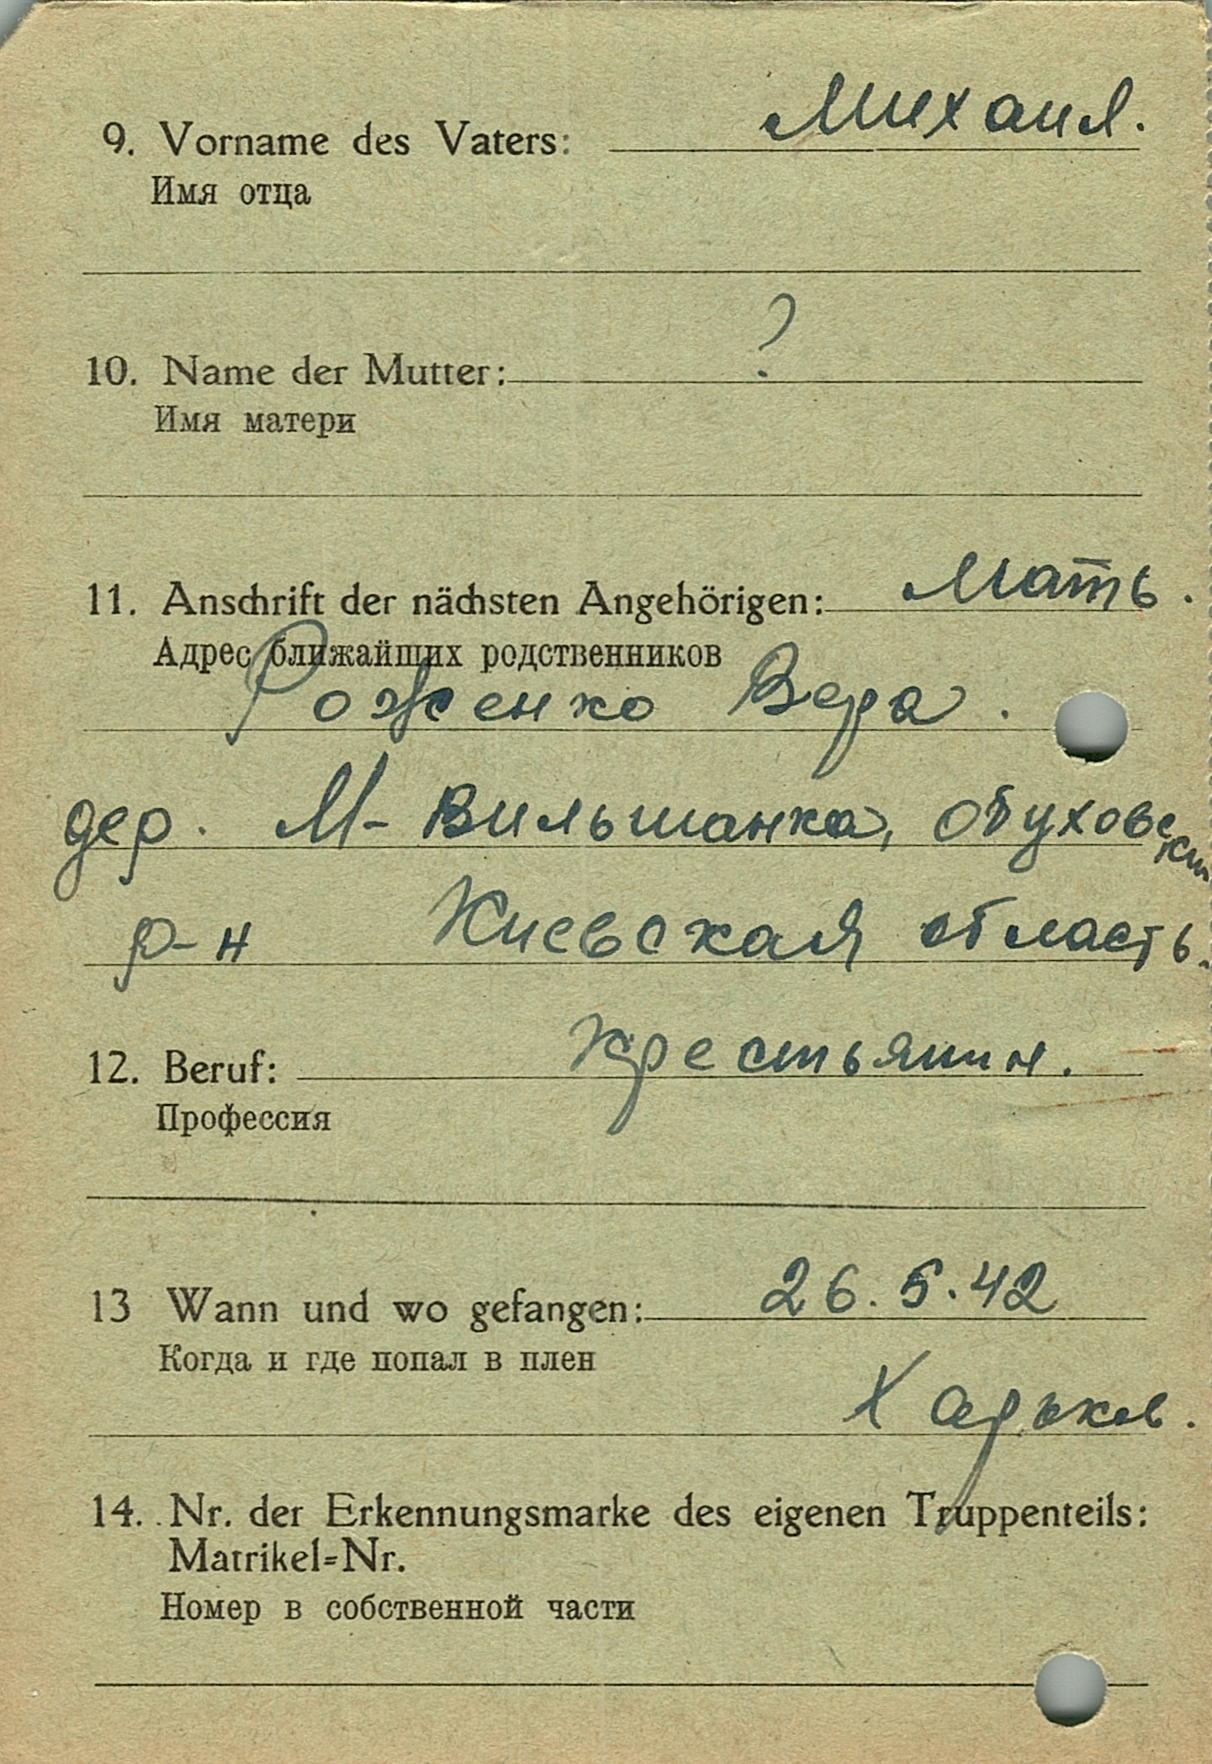 9. Vorname des Vaters: Михаил.
Имя отца
10. Name der Mutter: ?
Имя матери
11. Anschrift der nächsten Angehörigen: Мать.
Адрес ближайших родственников
Роженко Вера.
дер. М-Вильшанка, Обуховский
р-н Киевская область.
12. Beruf: Крестьянин.
Профессия
13 Wann und wo gefangen: 26.5.42
Когда и где попал в плен
Харьков.
14. Nr. der Erkennungsmarke des eigenen Truppenteils:
Matrikel=Nr.
Номер в собственной части